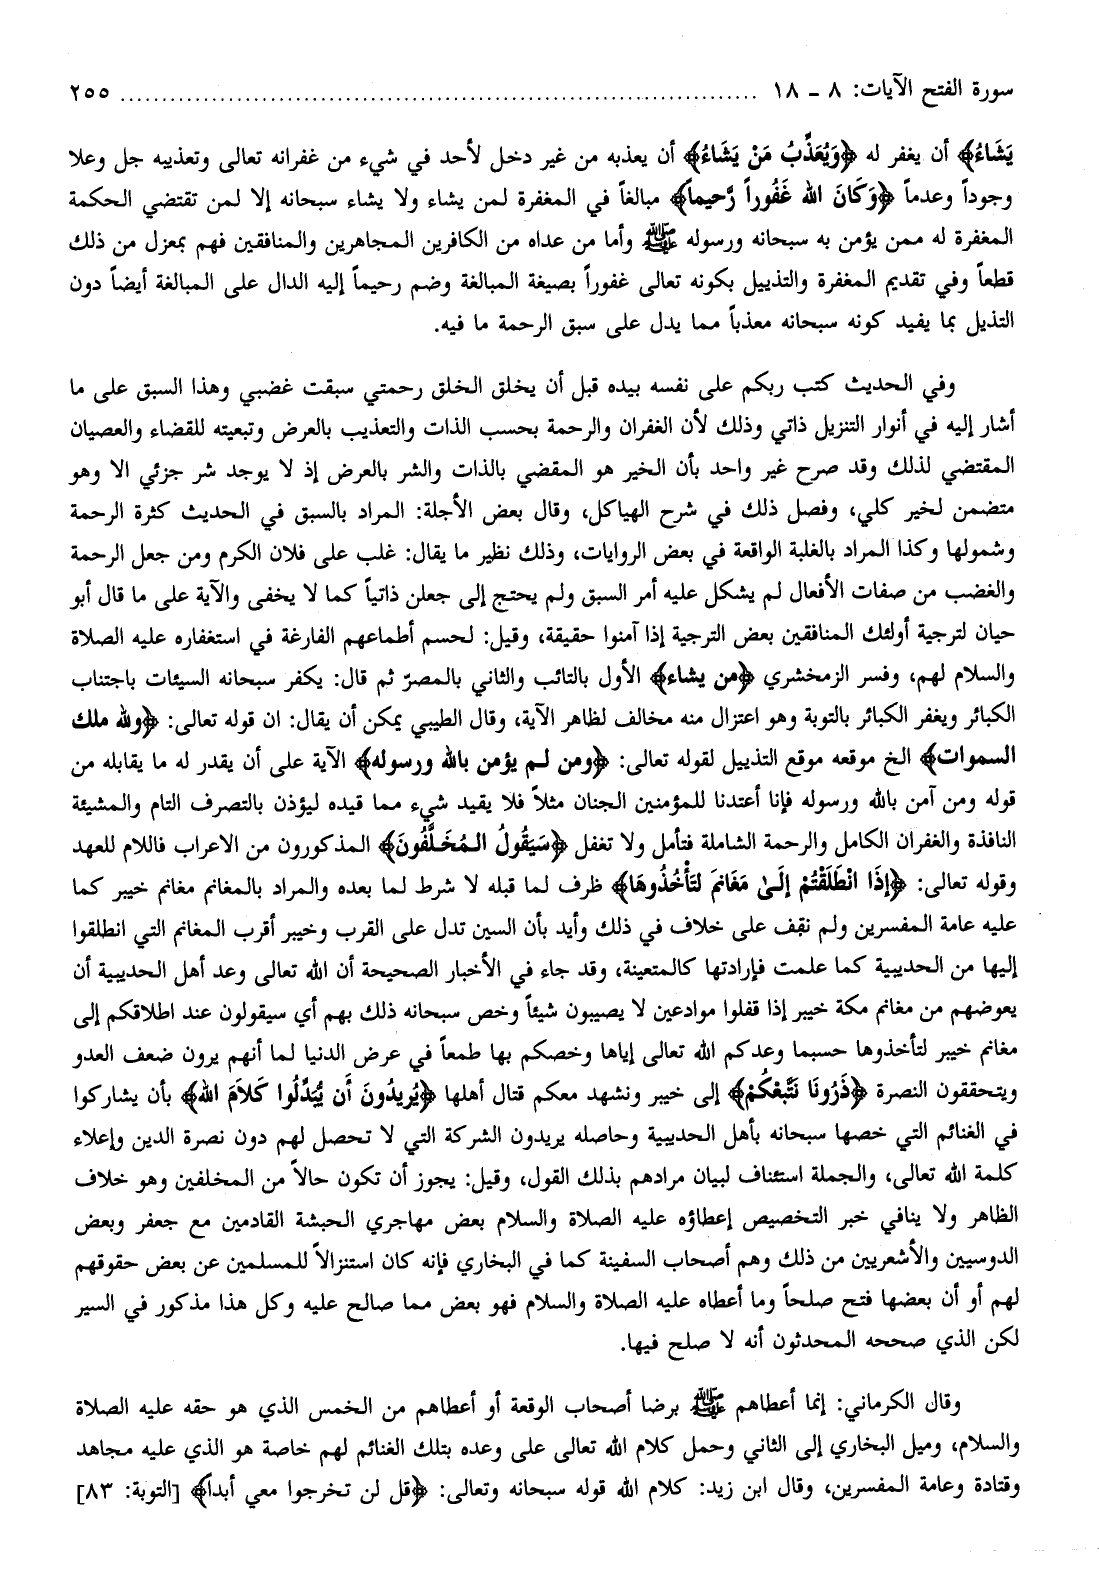 سورة الفتح الآيات: ٨ - ١٨ ................................................................................ ٢٥٥
يَشَاءُ﴾ أن يغفر له ﴿وَيُعَذِّبُ مَنْ يَشَاءُ﴾ أن يعذبه من غير دخل لأحد في شيء من غفرانه تعالى وتعذيبه جل وعلا
وجوداً وعدماً ﴿وَكَانَ الله غَفُوراً رَّحيماً﴾ مبالغاً في المغفرة لمن يشاء ولا يشاء سبحانه إلا لمن تقتضي الحكمة
المغفرة له ممن يؤمن به سبحانه ورسوله ﷺ وأما من عداه من الكافرين المجاهرين والمنافقين فهم بمعزل من ذلك
قطعاً وفي تقديم المغفرة والتذييل بكونه تعالى غفوراً بصيغة المبالغة وضم رحيماً إليه الدال على المبالغة أيضاً دون
التذيل بما يفيد كونه سبحانه معذباً مما يدل على سبق الرحمة ما فيه.
وفي الحديث كتب ربكم على نفسه بيده قبل أن يخلق الخلق رحمتي سبقت غضبي وهذا السبق على ما
أشار إليه في أنوار التنزيل ذاتي وذلك لأن الغفران والرحمة بحسب الذات والتعذيب بالعرض وتبعيته للقضاء والعصيان
المقتضي لذلك وقد صرح غير واحد بأن الخير هو المقضي بالذات والشر بالعرض إذ لا يوجد شر جزئي الا وهو
متضمن لخير كلي، وفصل ذلك في شرح الهياكل، وقال بعض الأجلة: المراد بالسبق في الحديث كثرة الرحمة
وشمولها وكذا المراد بالغلبة الواقعة في بعض الروايات، وذلك نظير ما يقال: غلب على فلان الكرم ومن جعل الرحمة
والغضب من صفات الأفعال لم يشكل عليه أمر السبق ولم يحتج إلى جعلن ذاتياً كما لا يخفى والآية على ما قال أبو
حيان لترجية أولئك المنافقين بعض الترجية إذا آمنوا حقيقة، وقيل: لحسم أطماعهم الفارغة في استغفاره عليه الصلاة
والسلام لهم، وفسر الزمخشري ﴿من يشاء﴾ الأول بالتائب والثاني بالمصرّ ثم قال: يكفر سبحانه السيئات باجتناب
الكبائر ويغفر الكبائر بالتوبة وهو اعتزال منه مخالف لظاهر الآية، وقال الطيبي يمكن أن يقال: ان قوله تعالى: ﴿ولله ملك
السموات﴾ الخ موقعه موقع التذييل لقوله تعالى: ﴿ومن لم يؤمن بالله ورسوله﴾ الآية على أن يقدر له ما يقابله من
قوله ومن آمن بالله ورسوله فإنا أعتدنا للمؤمنين الجنان مثلاً فلا يقيد شيء مما قيده ليؤذن بالتصرف التام والمشيئة
النافذة والغفران الكامل والرحمة الشاملة فتأمل ولا تغفل ﴿سَيَقُولُ المُخَلَّفُونَ﴾ المذكورون من الاعراب فاللام للعهد
وقوله تعالى: ﴿إذَا انْطَلَقْتُمْ إلَىٰ مَغَانمَ لتَأْخُذُوهَا﴾ ظرف لما قبله لا شرط لما بعده والمراد بالمغانم مغانم خيبر كما
عليه عامة المفسرين ولم نقف على خلاف في ذلك وأيد بأن السين تدل على القرب وخيبر أقرب المغانم التي انطلقوا
إليها من الحديبية كما علمت فإرادتها كالمتعينة، وقد جاء في الأخبار الصحيحة أن الله تعالى وعد أهل الحديبية أن
يعوضهم من مغانم مكة خيبر إذا قفلوا موادعين لا يصيبون شيئاً وخص سبحانه ذلك بهم أي سيقولون عند اطلاقكم إلى
مغانم خيبر لتأخذوها حسبما وعدكم الله تعالى إياها وخصكم بها طمعاً في عرض الدنيا لما أنهم يرون ضعف العدو
ويتحققون النصرة ﴿ذَرُونَا نَتَّبعْكُمْ﴾ إلى خيبر ونشهد معكم قتال أهلها ﴿يُريدُونَ أَن يُبَدِّلُوا كَلاَمَ الله﴾ بأن يشاركوا
في الغنائم التي خصها سبحانه بأهل الحديبية وحاصله يريدون الشركة التي لا تحصل لهم دون نصرة الدين وإعلاء
كلمة الله تعالى، والجملة استئناف لبيان مرادهم بذلك القول، وقيل: يجوز أن تكون حالاً من المخلفين وهو خلاف
الظاهر ولا ينافي خبر التخصيص إعطاؤه عليه الصلاة والسلام بعض مهاجري الحبشة القادمين مع جعفر وبعض
الدوسيين والأشعريين من ذلك وهم أصحاب السفينة كما في البخاري فإنه كان استنزالاً للمسلمين عن بعض حقوقهم
لهم أو أن بعضها فتح صلحاً وما أعطاه عليه الصلاة والسلام فهو بعض مما صالح عليه وكل هذا مذكور في السير
لكن الذي صححه المحدثون أنه لا صلح فيها.
وقال الكرماني: إنما أعطاهم ﷺ برضا أصحاب الوقعة أو أعطاهم من الخمس الذي هو حقه عليه الصلاة
والسلام، وميل البخاري إلى الثاني وحمل كلام الله تعالى على وعده بتلك الغنائم لهم خاصة هو الذي عليه مجاهد
وقتادة وعامة المفسرين، وقال ابن زيد: كلام الله قوله سبحانه وتعالى: ﴿قل لن تخرجوا معي أبداً﴾ [التوبة: ٨٣]